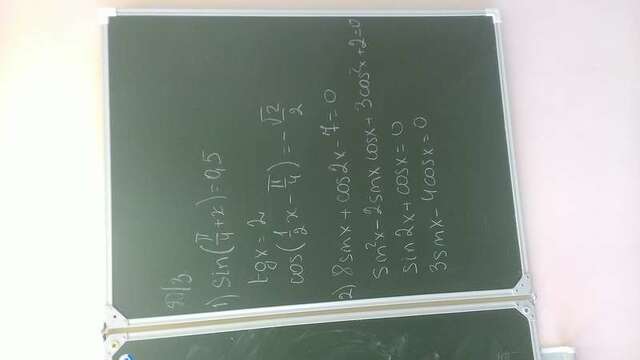 Д/З
1) sin(π/4 + x) = 0,5
tgx = 2
cos(1/2 x - π/4) = - √2/2
2) 8sinx + cos2x - 7 = 0
sin²x - 2sinx cosx + 3cos²x + 2 = 0
sin2x + cosx = 0
3sinx - 4cosx = 0